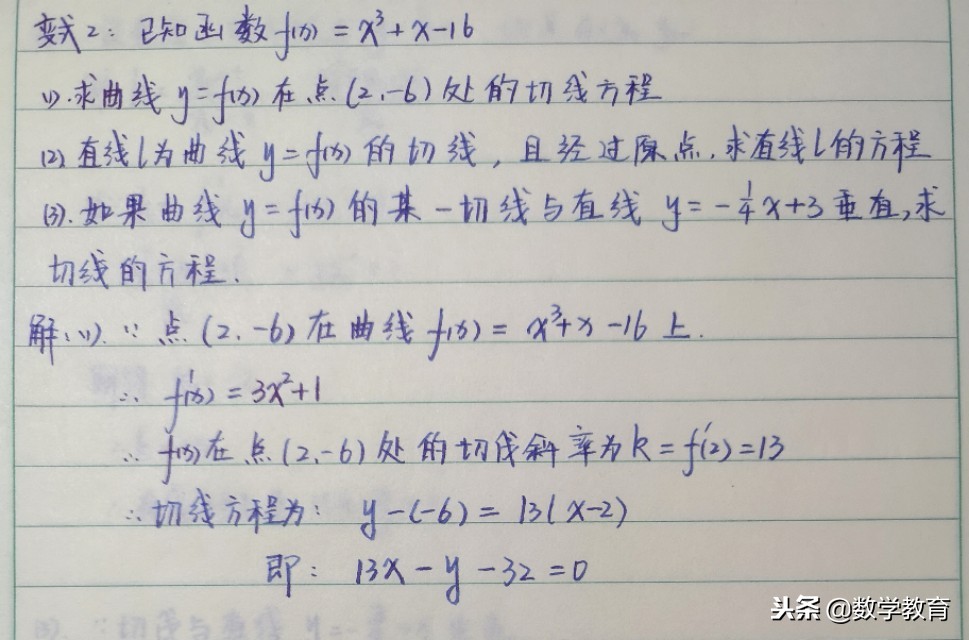 变式2: 已知函数f(x) = x³+x-16
(1).求曲线y=f(x)在点(2,-6)处的切线方程
(2)直线l为曲线y=f(x)的切线,且经过原点.求直线l的方程
(3).如果曲线y=f(x)的某一切线与直线 y=-¼x+3垂直,求
切线的方程.
解:(1). ∵ 点(2,-6)在曲线f(x) = x³+x-16上.
∴ f'(x) = 3x²+1
∴ f(x)在点(2,-6)处的切线斜率为k=f'(2)=13
∴切线方程为: y-(-6) = 13(x-2)
即: 13x-y-32=0
头条 @数学教育